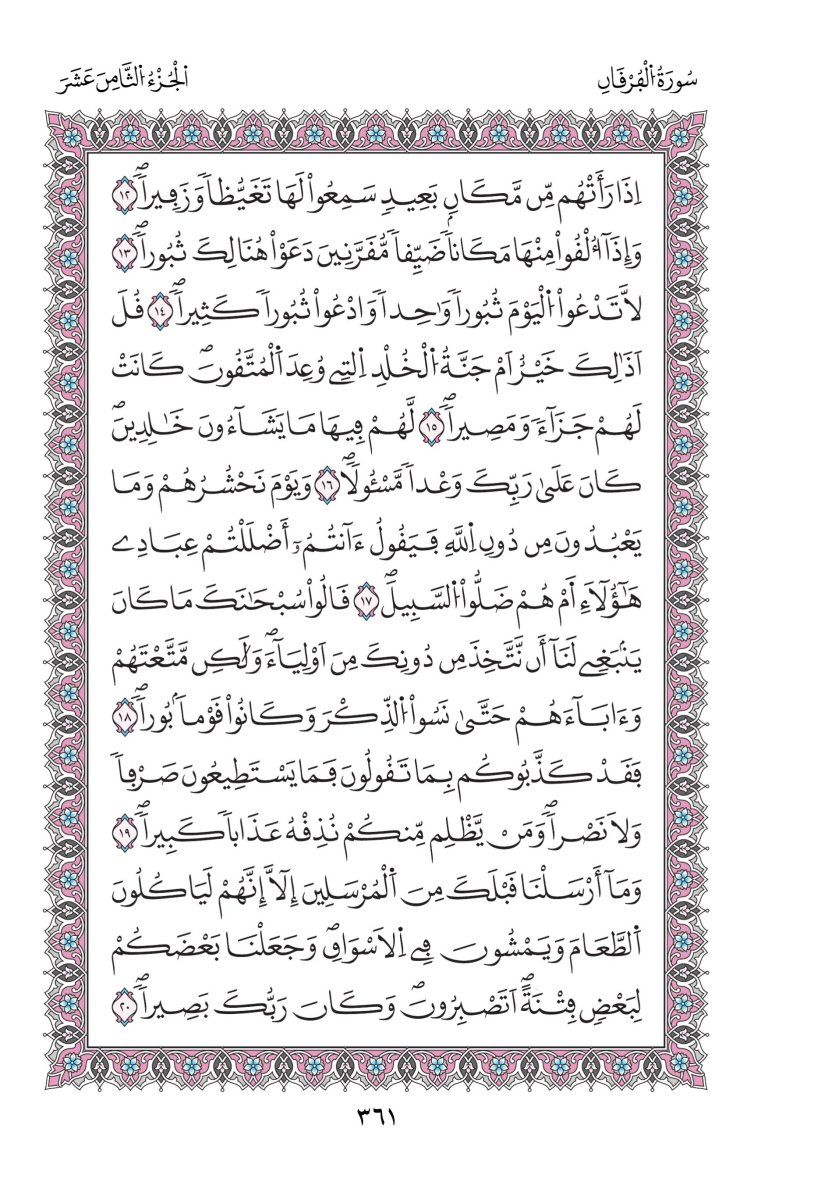 سُورَةُ اُ۬لْفُرْقَانِ
اَ۬لْجُزْءُ اُ۬لثَّامِنَ عَشَرَ
إِذَا رَأَتْهُم مِّن مَّكَانِۢ بَعِيدٖ سَمِعُواْ لَهَا تَغَيُّظاٗ وَزَفِيراٗۖ ١٢
وَإِذَآ أُلْقُواْ مِنْهَا مَكَاناٗ ضَيِّقاٗ مُّقَرَّنِينَ دَعَوْاْ هُنَالِكَ ثُبُوراٗۖ ١٣
لَّا تَدْعُواْ اُ۬لْيَوْمَ ثُبُوراٗ وَٰحِداٗ وَادْعُواْ ثُبُوراٗ كَثِيراٗۖ ١٤ قُلَ
اَذَٰلِكَ خَيْرٌ اَمْ جَنَّةُ اُ۬لْخُلْدِ اِ۬لتِے وُعِدَ اَ۬لْمُتَّقُونَۖ كَانَتْ
لَهُمْ جَزَآءٗ وَمَصِيراٗۖ ١٥ لَّهُمْ فِيهَا مَا يَشَآءُونَ خَٰلِدِينَۖ
كَانَ عَلَىٰ رَبِّكَ وَعْداٗ مَّسْـُٔولاٗۖ ١٦ وَيَوْمَ نَحْشُرُهُمْ وَمَا
يَعْبُدُونَ مِن دُونِ اِ۬للَّهِ فَيَقُولُ ءَآنتُمُۥٓ أَضْلَلْتُمْ عِبَادِے
هَٰٓؤُلَآءِ اَمْ هُمْ ضَلُّواْ اُ۬لسَّبِيلَۖ ١٧ قَالُواْ سُبْحَٰنَكَ مَا كَانَ
يَنۢبَغِے لَنَآ أَن نَّتَّخِذَ مِن دُونِكَ مِنَ اَوْلِيَآءَۖ وَلَٰكِن مَّتَّعْتَهُمْ
وَءَابَآءَهُمْ حَتَّىٰ نَسُواْ اُ۬لذِّكْرَ وَكَانُواْ قَوْماَۢ بُوراٗۖ ١٨
فَقَدْ كَذَّبُوكُم بِمَا تَقُولُونَ فَمَا يَسْتَطِيعُونَ صَرْفاٗ
وَلَا نَصْراٗۖ وَمَنْ يَّظْلِم مِّنكُمْ نُذِقْهُ عَذَاباٗ كَبِيراٗۖ ١٩
وَمَآ أَرْسَلْنَا قَبْلَكَ مِنَ اَ۬لْمُرْسَلِينَ إِلَّآ إِنَّهُمْ لَيَاكُلُونَ
اَ۬لطَّعَامَ وَيَمْشُونَ فِے اِ۬لَاسْوَاقِۖ وَجَعَلْنَا بَعْضَكُمْ
لِبَعْضٖ فِتْنَةًۖ اَتَصْبِرُونَۖ وَكَانَ رَبُّكَ بَصِيراٗۖ ٢٠
٣٦١